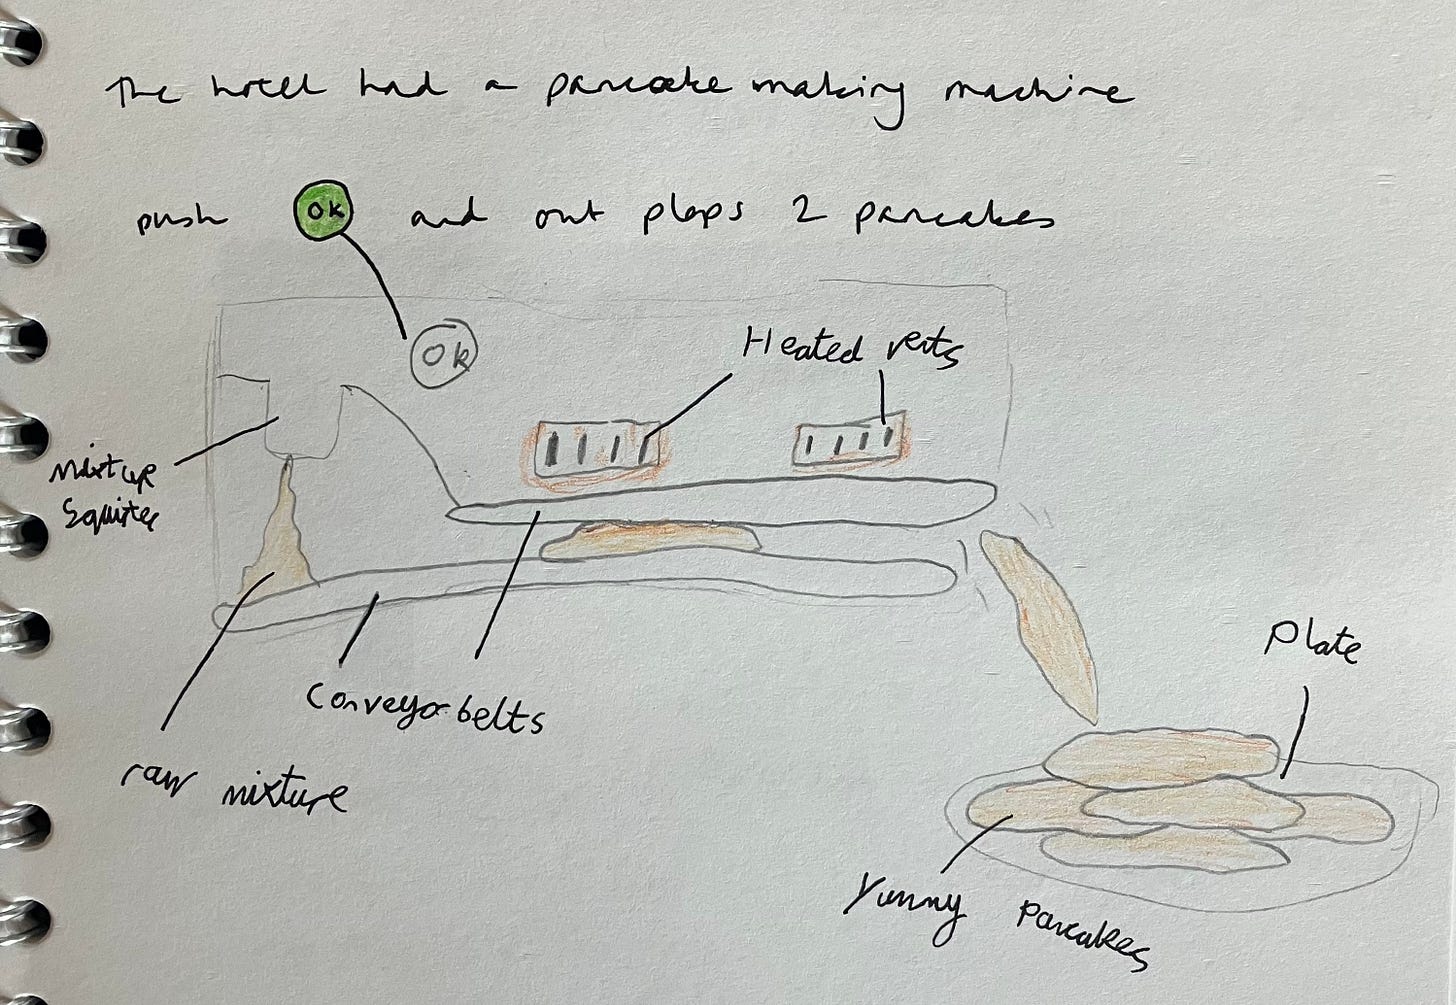 The hotel had a pancake making machine
push OK and out plops 2 pancakes
OK
Heated vents
mixture
Squirter
Conveyor belts
raw mixture
Plate
Yummy pancakes